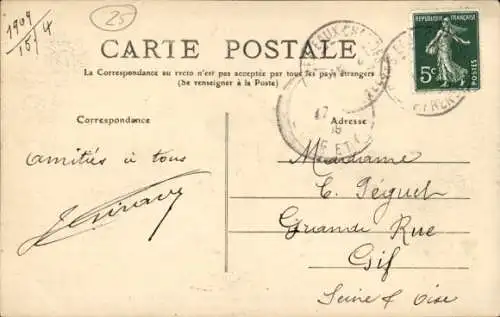 1909
15/4
25
CARTE POSTALE
La Correspondance au recto n'est pas acceptée par tous les pays étrangers
(Se renseigner à la Poste)
REPUBLIQUE FRANÇAISE
5c
POSTES
Correspondance
Adresse
amitiés à tous
Madame
C. Péguet
Grande Rue
Gif
Seine & Oise